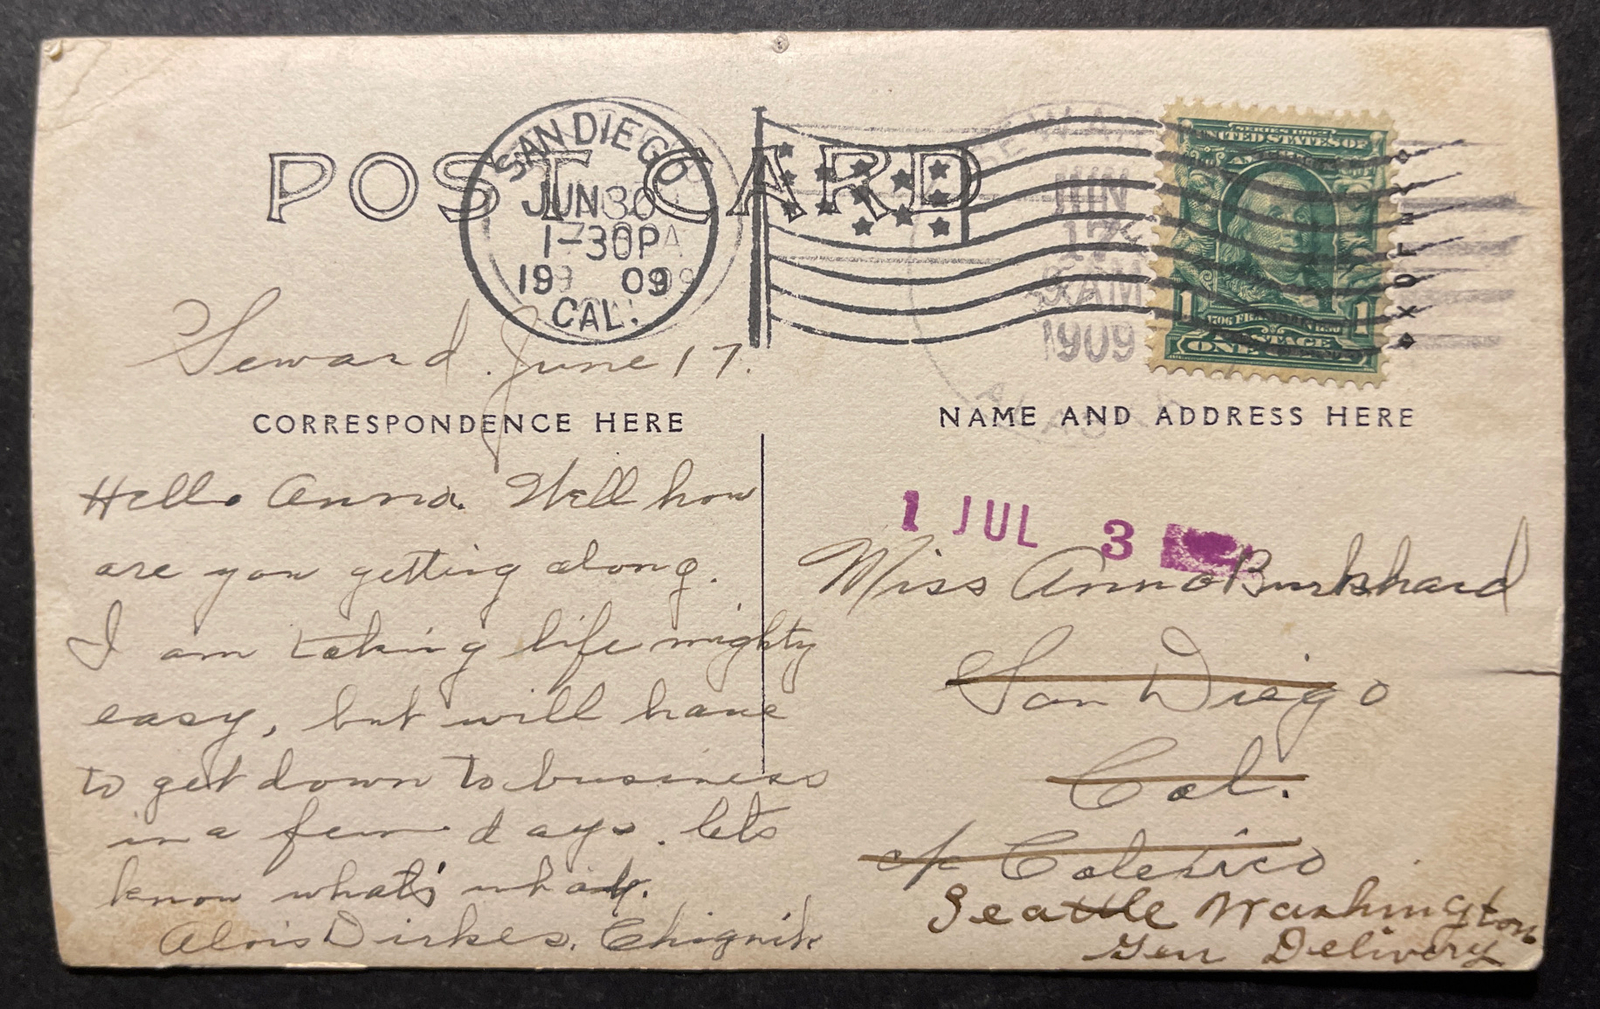 POST CARD
SAN DIEGO
JUN 30
1-30P
19 09
CAL.
SEWARD
JUN
17
AM
1909
ALASKA
SERIES 1902
UNITED STATES OF
AMERICA
1 1
FRANKLIN
POSTAGE
ONE CENT
Seward. June 17.
CORRESPONDENCE HERE
Hello Anna. Well how
are you getting along.
I am taking life mighty
easy, but will have
to get down to business
in a few days. lets
know what's what.
Alois Dirkes. Chignik
NAME AND ADDRESS HERE
1 JUL 3
Miss Anna Burkhard
San Diego
Cal.
c/o Calexico
Seattle Washington
Gen Delivery